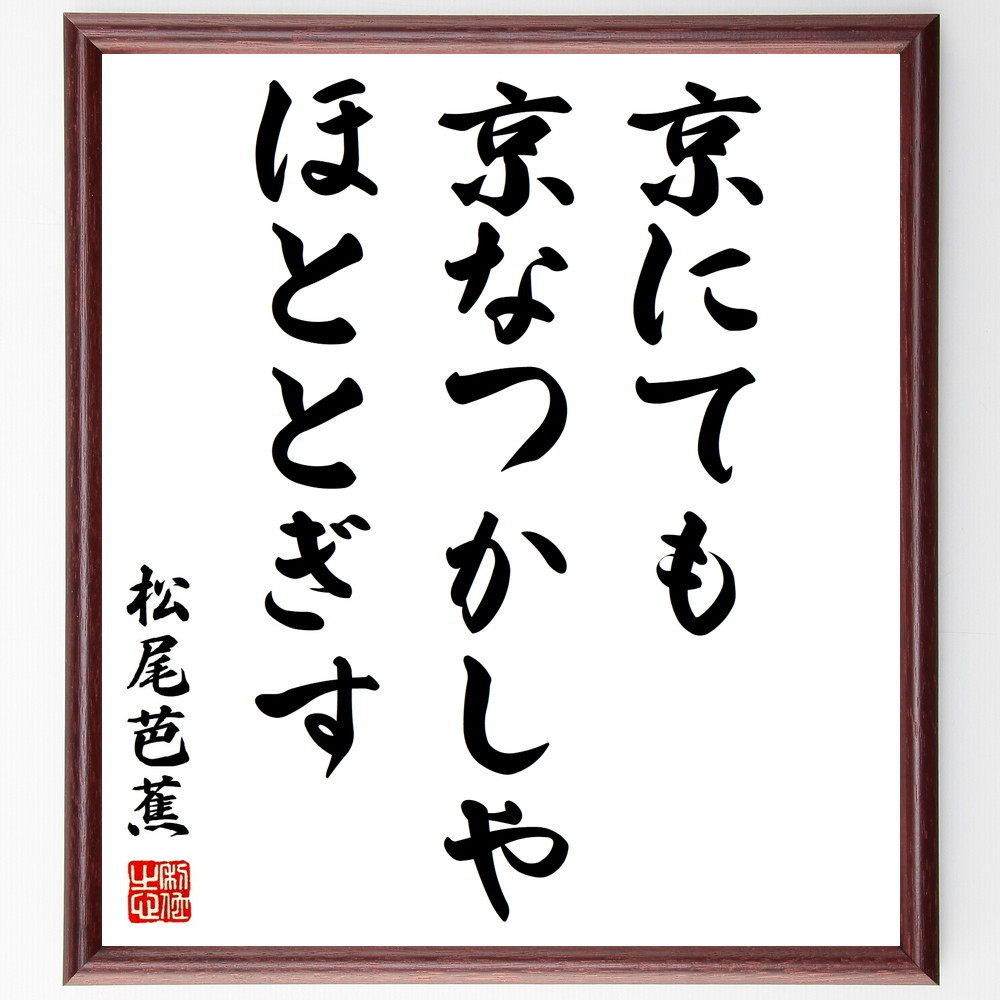 京にても
京なつかしや
ほととぎす
松尾芭蕉